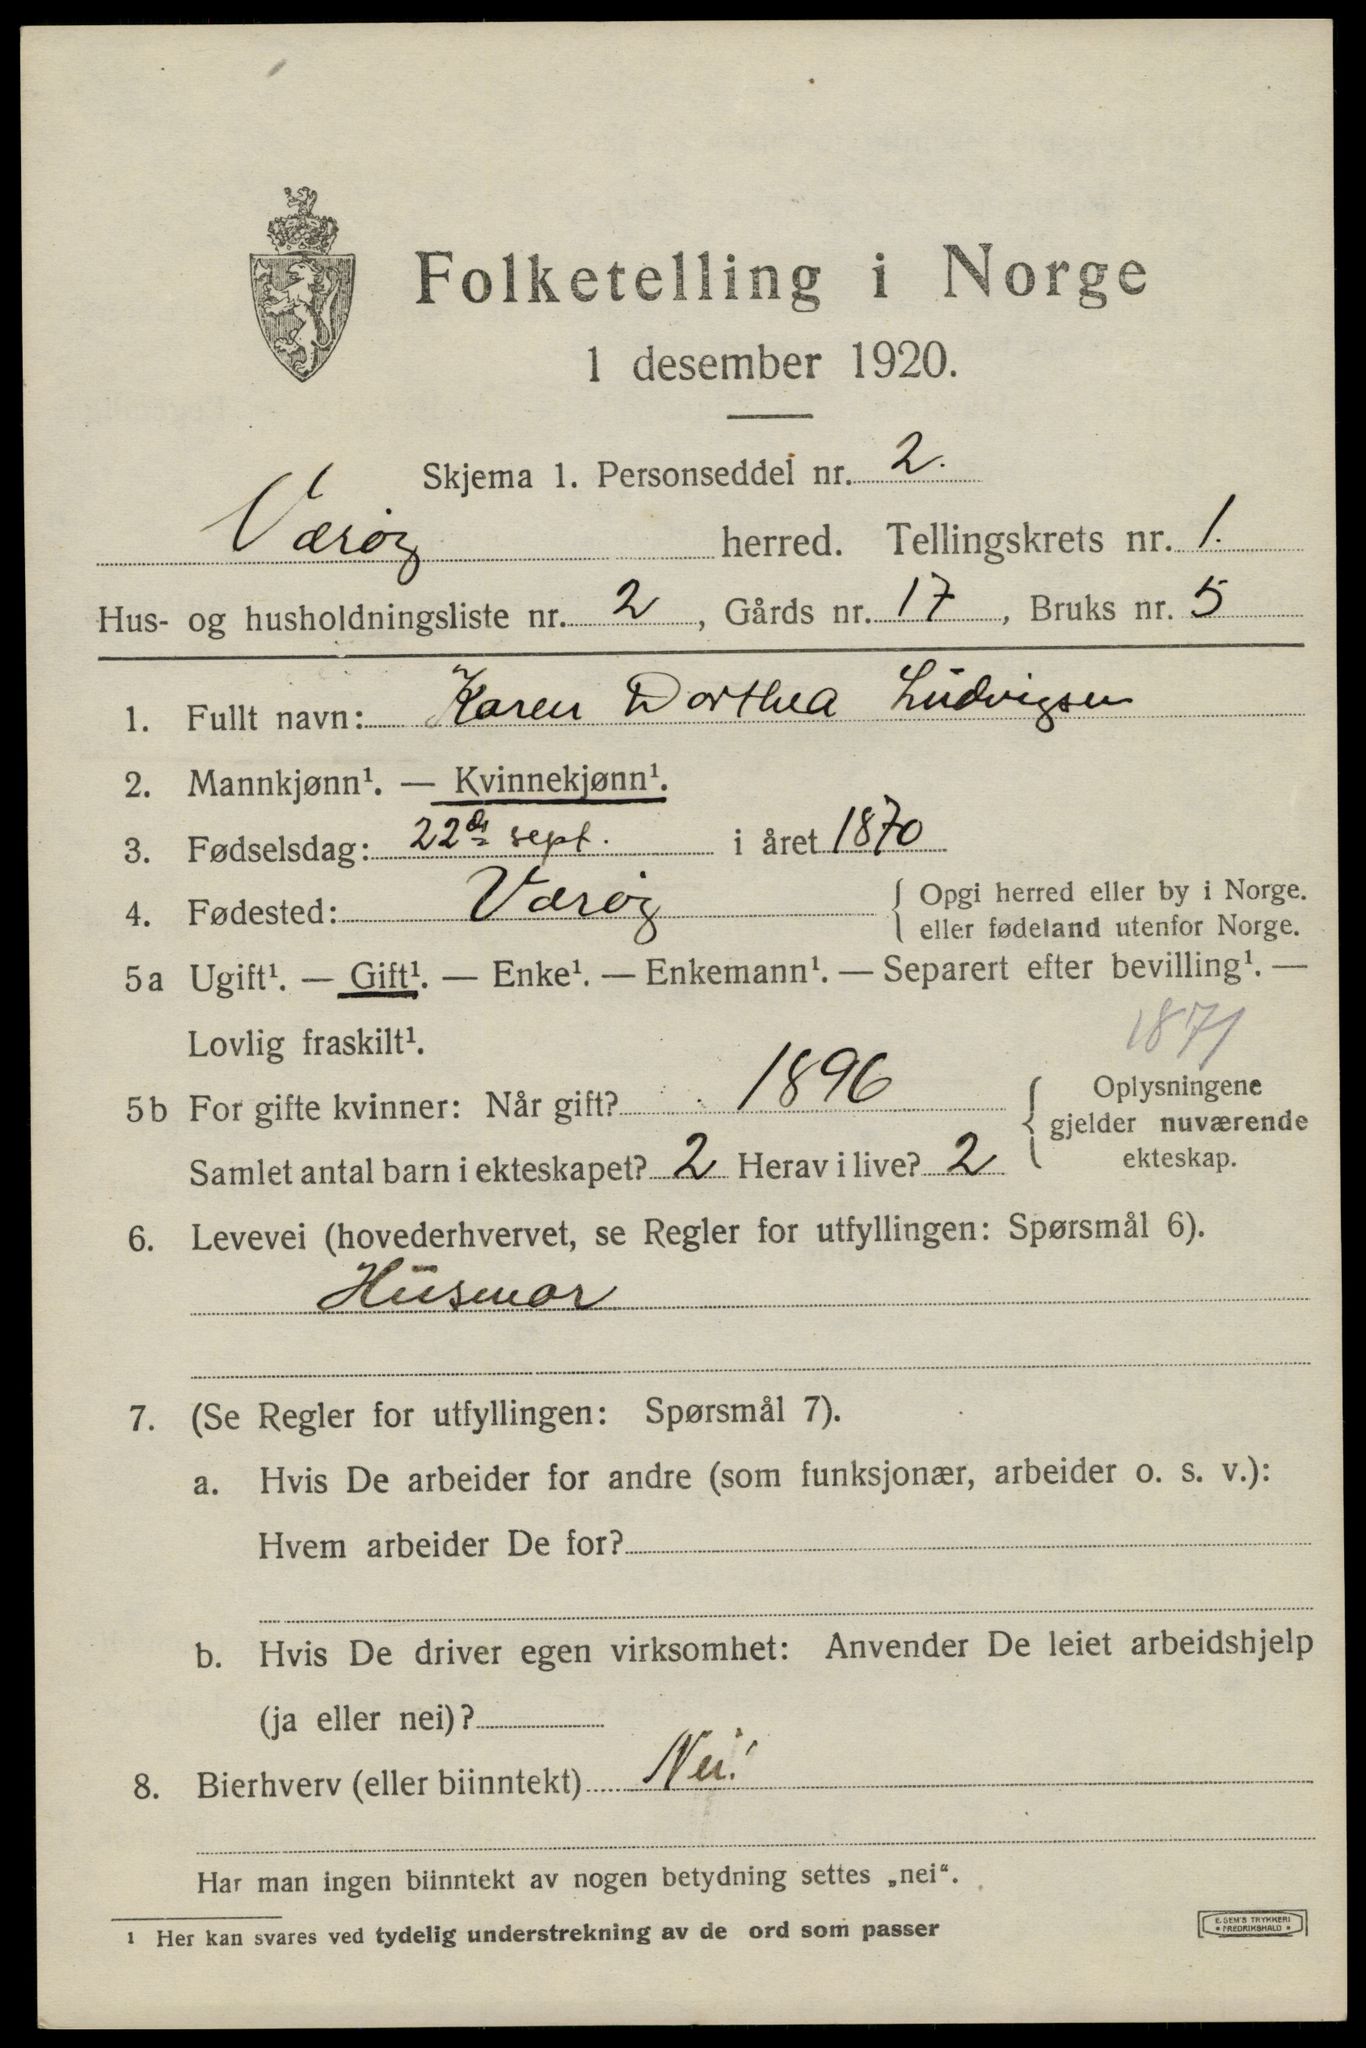 Folketelling i Norge
1 desember 1920.
Skjema 1. Personseddel nr. 2.
Værøy herred. Tellingskrets nr. 1.
Hus- og husholdningsliste nr. 2, Gårds nr. 17, Bruks nr. 5
1. Fullt navn: Karen Dorthea Ludvigsen
2. Mannkjønn¹. — Kvinnekjønn¹.
3. Fødselsdag: 22de sept. i året 1870
4. Fødested: Værøy { Opgi herred eller by i Norge.
eller fødeland utenfor Norge.
5a Ugift¹. — Gift¹. — Enke¹. — Enkemann¹. — Separert efter bevilling¹. —
Lovlig fraskilt¹. 1871
5b For gifte kvinner: Når gift? 1896 { Oplysningene
gjelder nuværende
Samlet antal barn i ekteskapet? 2 Herav i live? 2 ekteskap.
6. Levevei (hovederhvervet, se Regler for utfyllingen: Spørsmål 6).
Husmor
7. (Se Regler for utfyllingen: Spørsmål 7).
a. Hvis De arbeider for andre (som funksjonær, arbeider o. s. v.):
Hvem arbeider De for?
b. Hvis De driver egen virksomhet: Anvender De leiet arbeidshjelp
(ja eller nei)?
8. Bierhverv (eller biinntekt) Nei!
Har man ingen biinntekt av nogen betydning settes „nei“.
¹ Her kan svares ved tydelig understrekning av de ord som passer
E. SEM'S TRYKKERI
* FREDRIKSHALD *